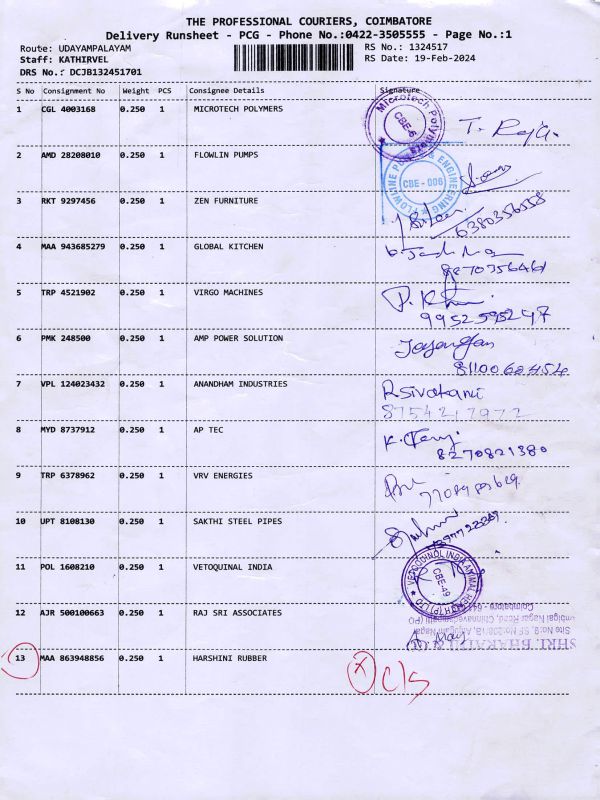 THE PROFESSIONAL COURIERS, COIMBATORE
Delivery Runsheet - PCG - Phone No.:0422-3505555 - Page No.:1
Route: UDAYAMPALAYAM RS No.: 1324517
Staff: KATHIRVEL RS Date: 19-Feb-2024
DRS No.: DCJB132451701
S No Consignment No Weight PCS Consignee Details Signature
1 CGL 4003168 0.250 1 MICROTECH POLYMERS Microtech Polymers CBE-6 T. Raja.
2 AMD 28208010 0.250 1 FLOWLIN PUMPS FLOWLINE PUMPS & ENGINEERING CBE - 006
3 RKT 9297456 0.250 1 ZEN FURNITURE 6380356558
4 MAA 943685279 0.250 1 GLOBAL KITCHEN 8270356461
5 TRP 4521902 0.250 1 VIRGO MACHINES 9952595247
6 PMK 248500 0.250 1 AMP POWER SOLUTION 8110060454
7 VPL 124023432 0.250 1 ANANDHAM INDUSTRIES R.Sivakami
8754217972
8 MYD 8737912 0.250 1 AP TEC 8270821380
9 TRP 6378962 0.250 1 VRV ENERGIES
10 UPT 8108130 0.250 1 SAKTHI STEEL PIPES
11 POL 1608210 0.250 1 VETOQUINAL INDIA CBE-49
12 AJR 500100663 0.250 1 RAJ SRI ASSOCIATES SHRI. BHARATHI
13 MAA 863948856 0.250 1 HARSHINI RUBBER X C/S